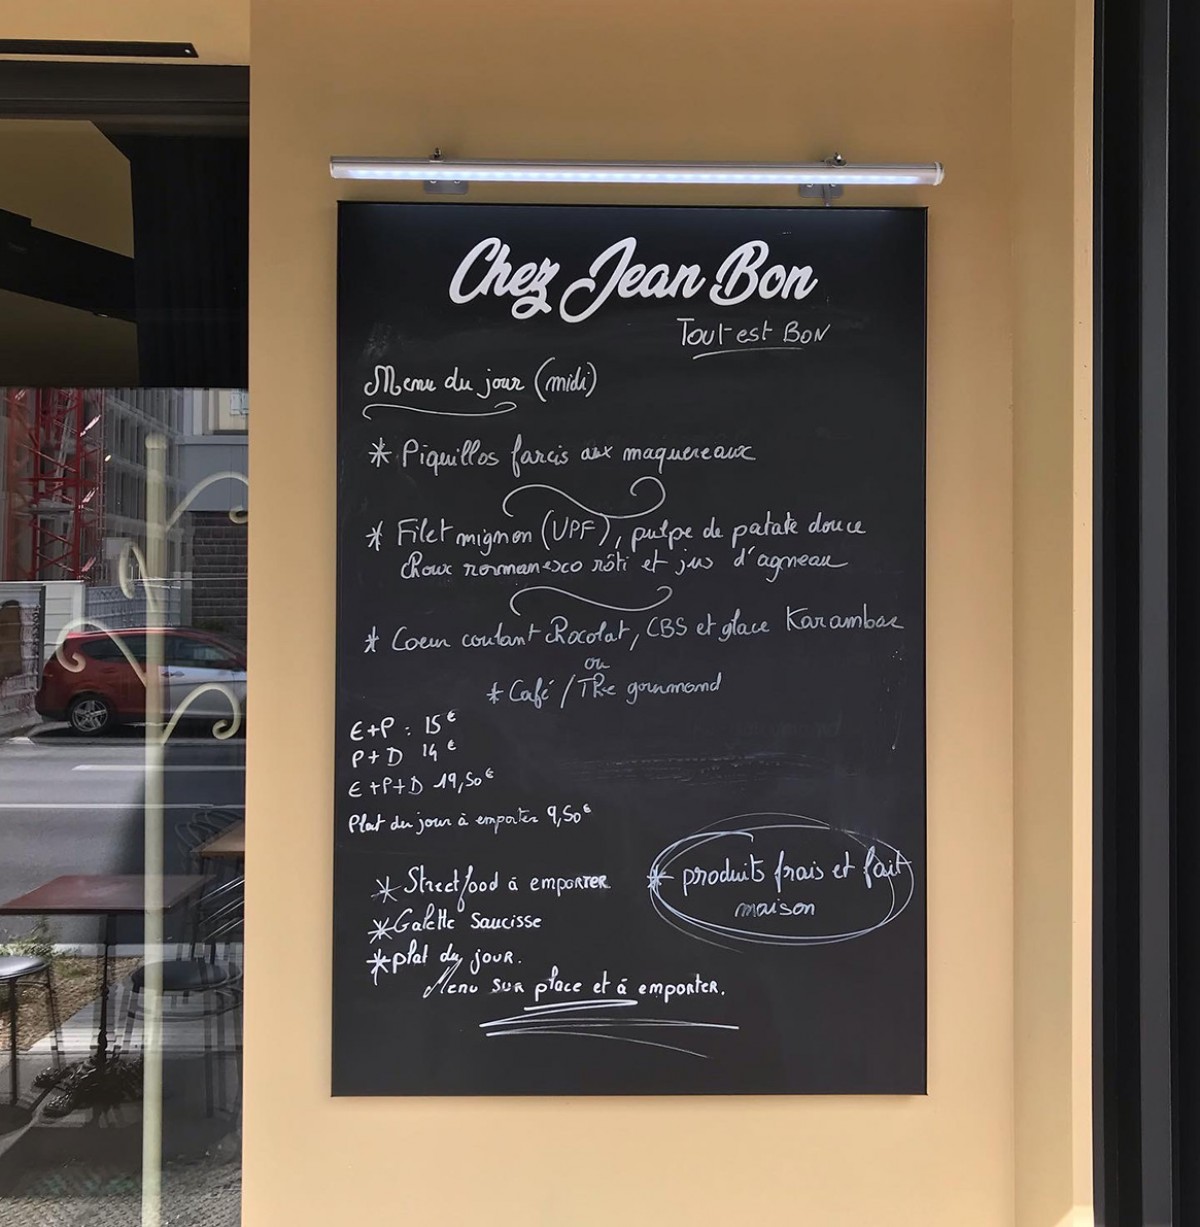 Chez Jean Bon
Tout est Bon
Menu du jour (midi)
* Piquillos farcis aux maquereaux
* Filet mignon (VPF), pulpe de patate douce
choux normanesco rôti et jus d'agneau
* Coeur coulant chocolat, CBS et glace Karambar
ou
* Café / Thé gourmand
E+P : 15€
P+D 14€
E+P+D 19,50€
Plat du jour à emporter 9,50€
* Street food à emporter
* produits frais et fait
maison
* Galette Saucisse
* plat du jour.
Menu sur place et à emporter.